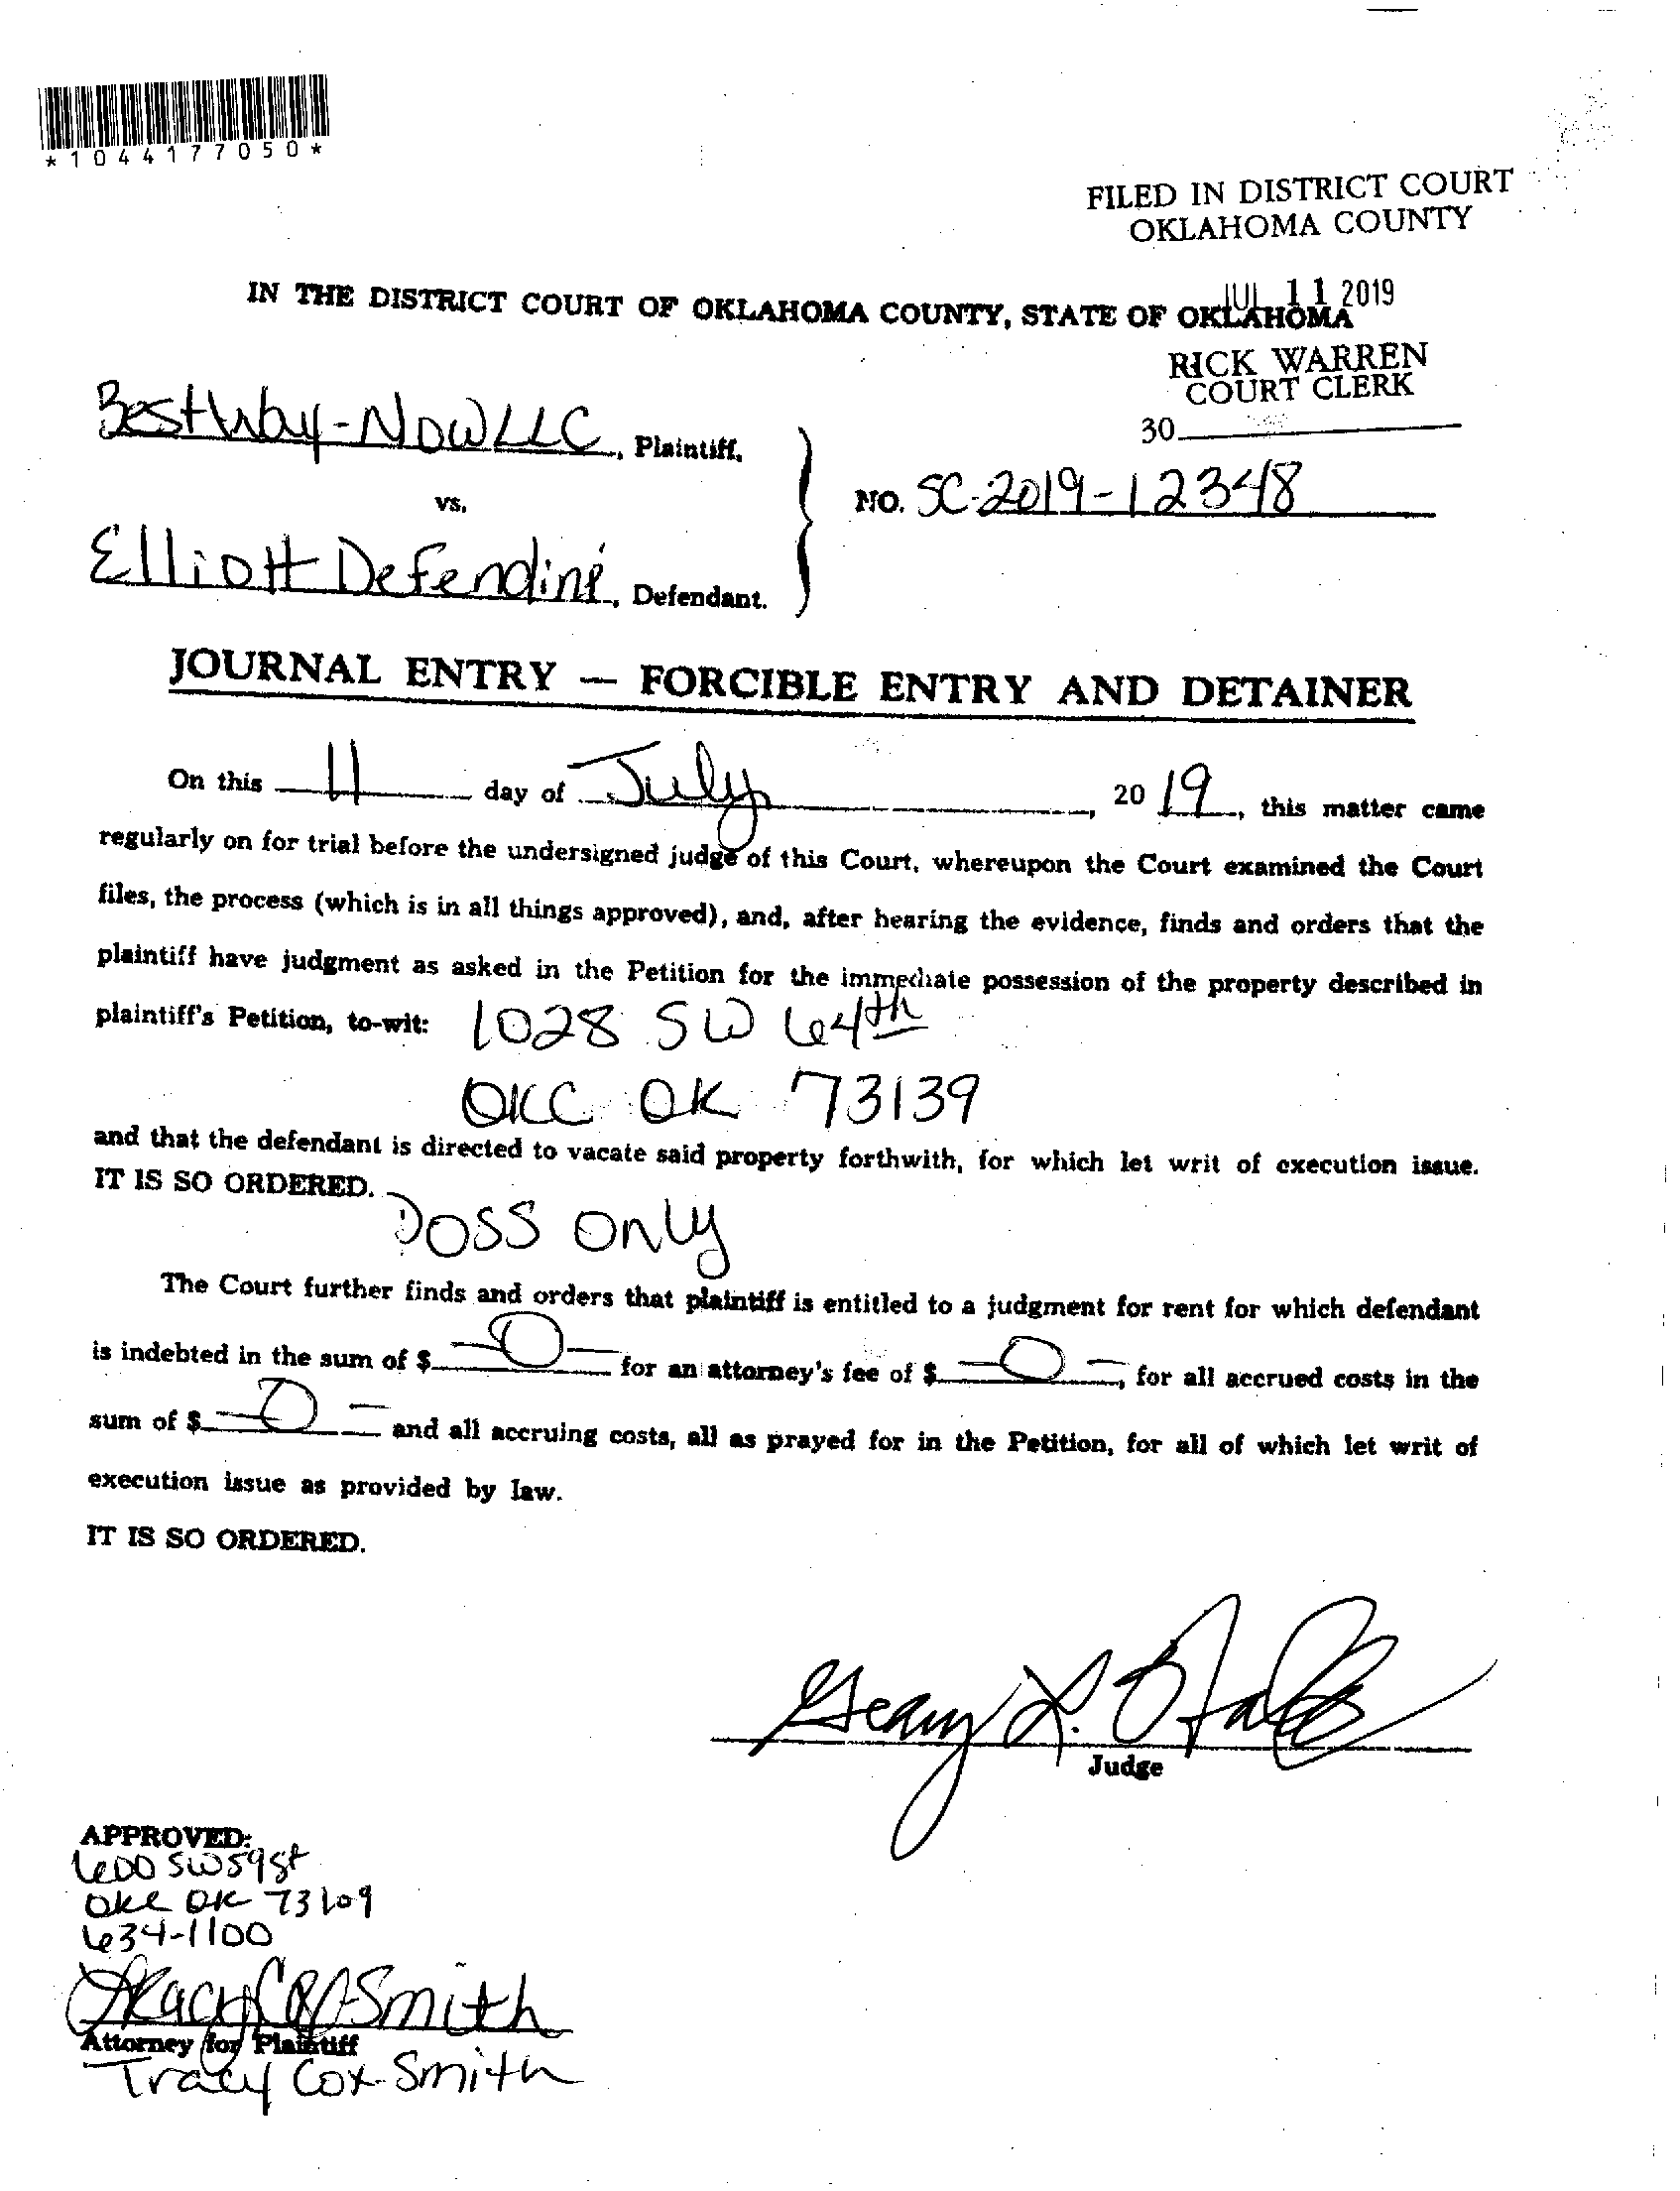 *1044177050*
FILED IN DISTRICT COURT
OKLAHOMA COUNTY
JUL 11 2019
IN THE DISTRICT COURT OF OKLAHOMA COUNTY, STATE OF OKLAHOMA
RICK WARREN
COURT CLERK
30
BestWay-Now LLC, Plaintiff,
vs.
NO. SC-2019-12348
Elliott Defendini, Defendant.
JOURNAL ENTRY — FORCIBLE ENTRY AND DETAINER
On this 11 day of July, 2019, this matter came
regularly on for trial before the undersigned judge of this Court, whereupon the Court examined the Court
files, the process (which is in all things approved), and, after hearing the evidence, finds and orders that the
plaintiff have judgment as asked in the Petition for the immediate possession of the property described in
plaintiff's Petition, to-wit: 1028 SW 64th
OKC OK 73139
and that the defendant is directed to vacate said property forthwith, for which let writ of execution issue.
IT IS SO ORDERED.
Poss only
The Court further finds and orders that plaintiff is entitled to a judgment for rent for which defendant
is indebted in the sum of $ -0- for an attorney's fee of $ -0-, for all accrued costs in the
sum of $ -0- and all accruing costs, all as prayed for in the Petition, for all of which let writ of
execution issue as provided by law.
IT IS SO ORDERED.
Judge
APPROVED:
600 SW 59 St
OKC OK 73109
634-1100
Tracy Cox-Smith
Attorney for Plaintiff
Tracy Cox-Smith